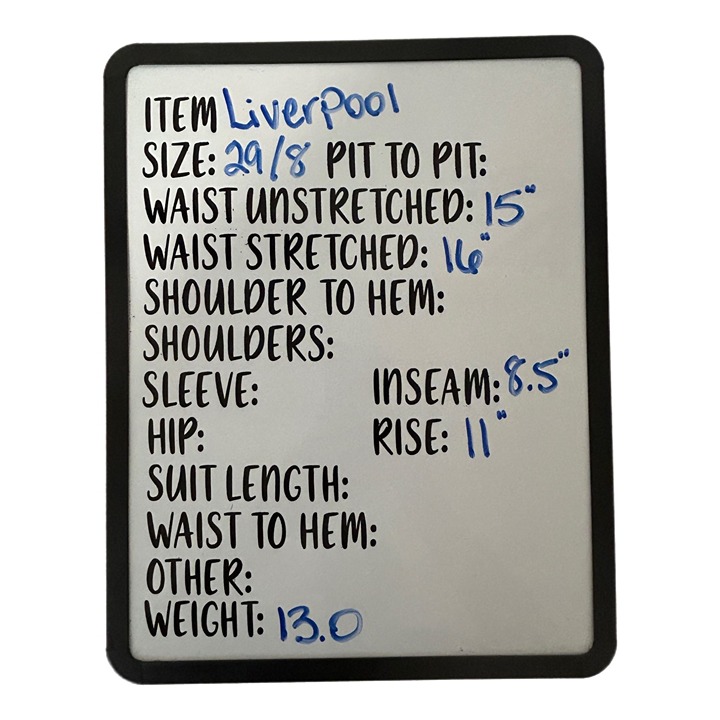 ITEM LiverPool
SIZE: 29/8 PIT TO PIT:
WAIST UNSTRETCHED: 15"
WAIST STRETCHED: 16"
SHOULDER TO HEM:
SHOULDERS:
SLEEVE: INSEAM: 8.5"
HIP: RISE: 11"
SUIT LENGTH:
WAIST TO HEM:
OTHER:
WEIGHT: 13.0